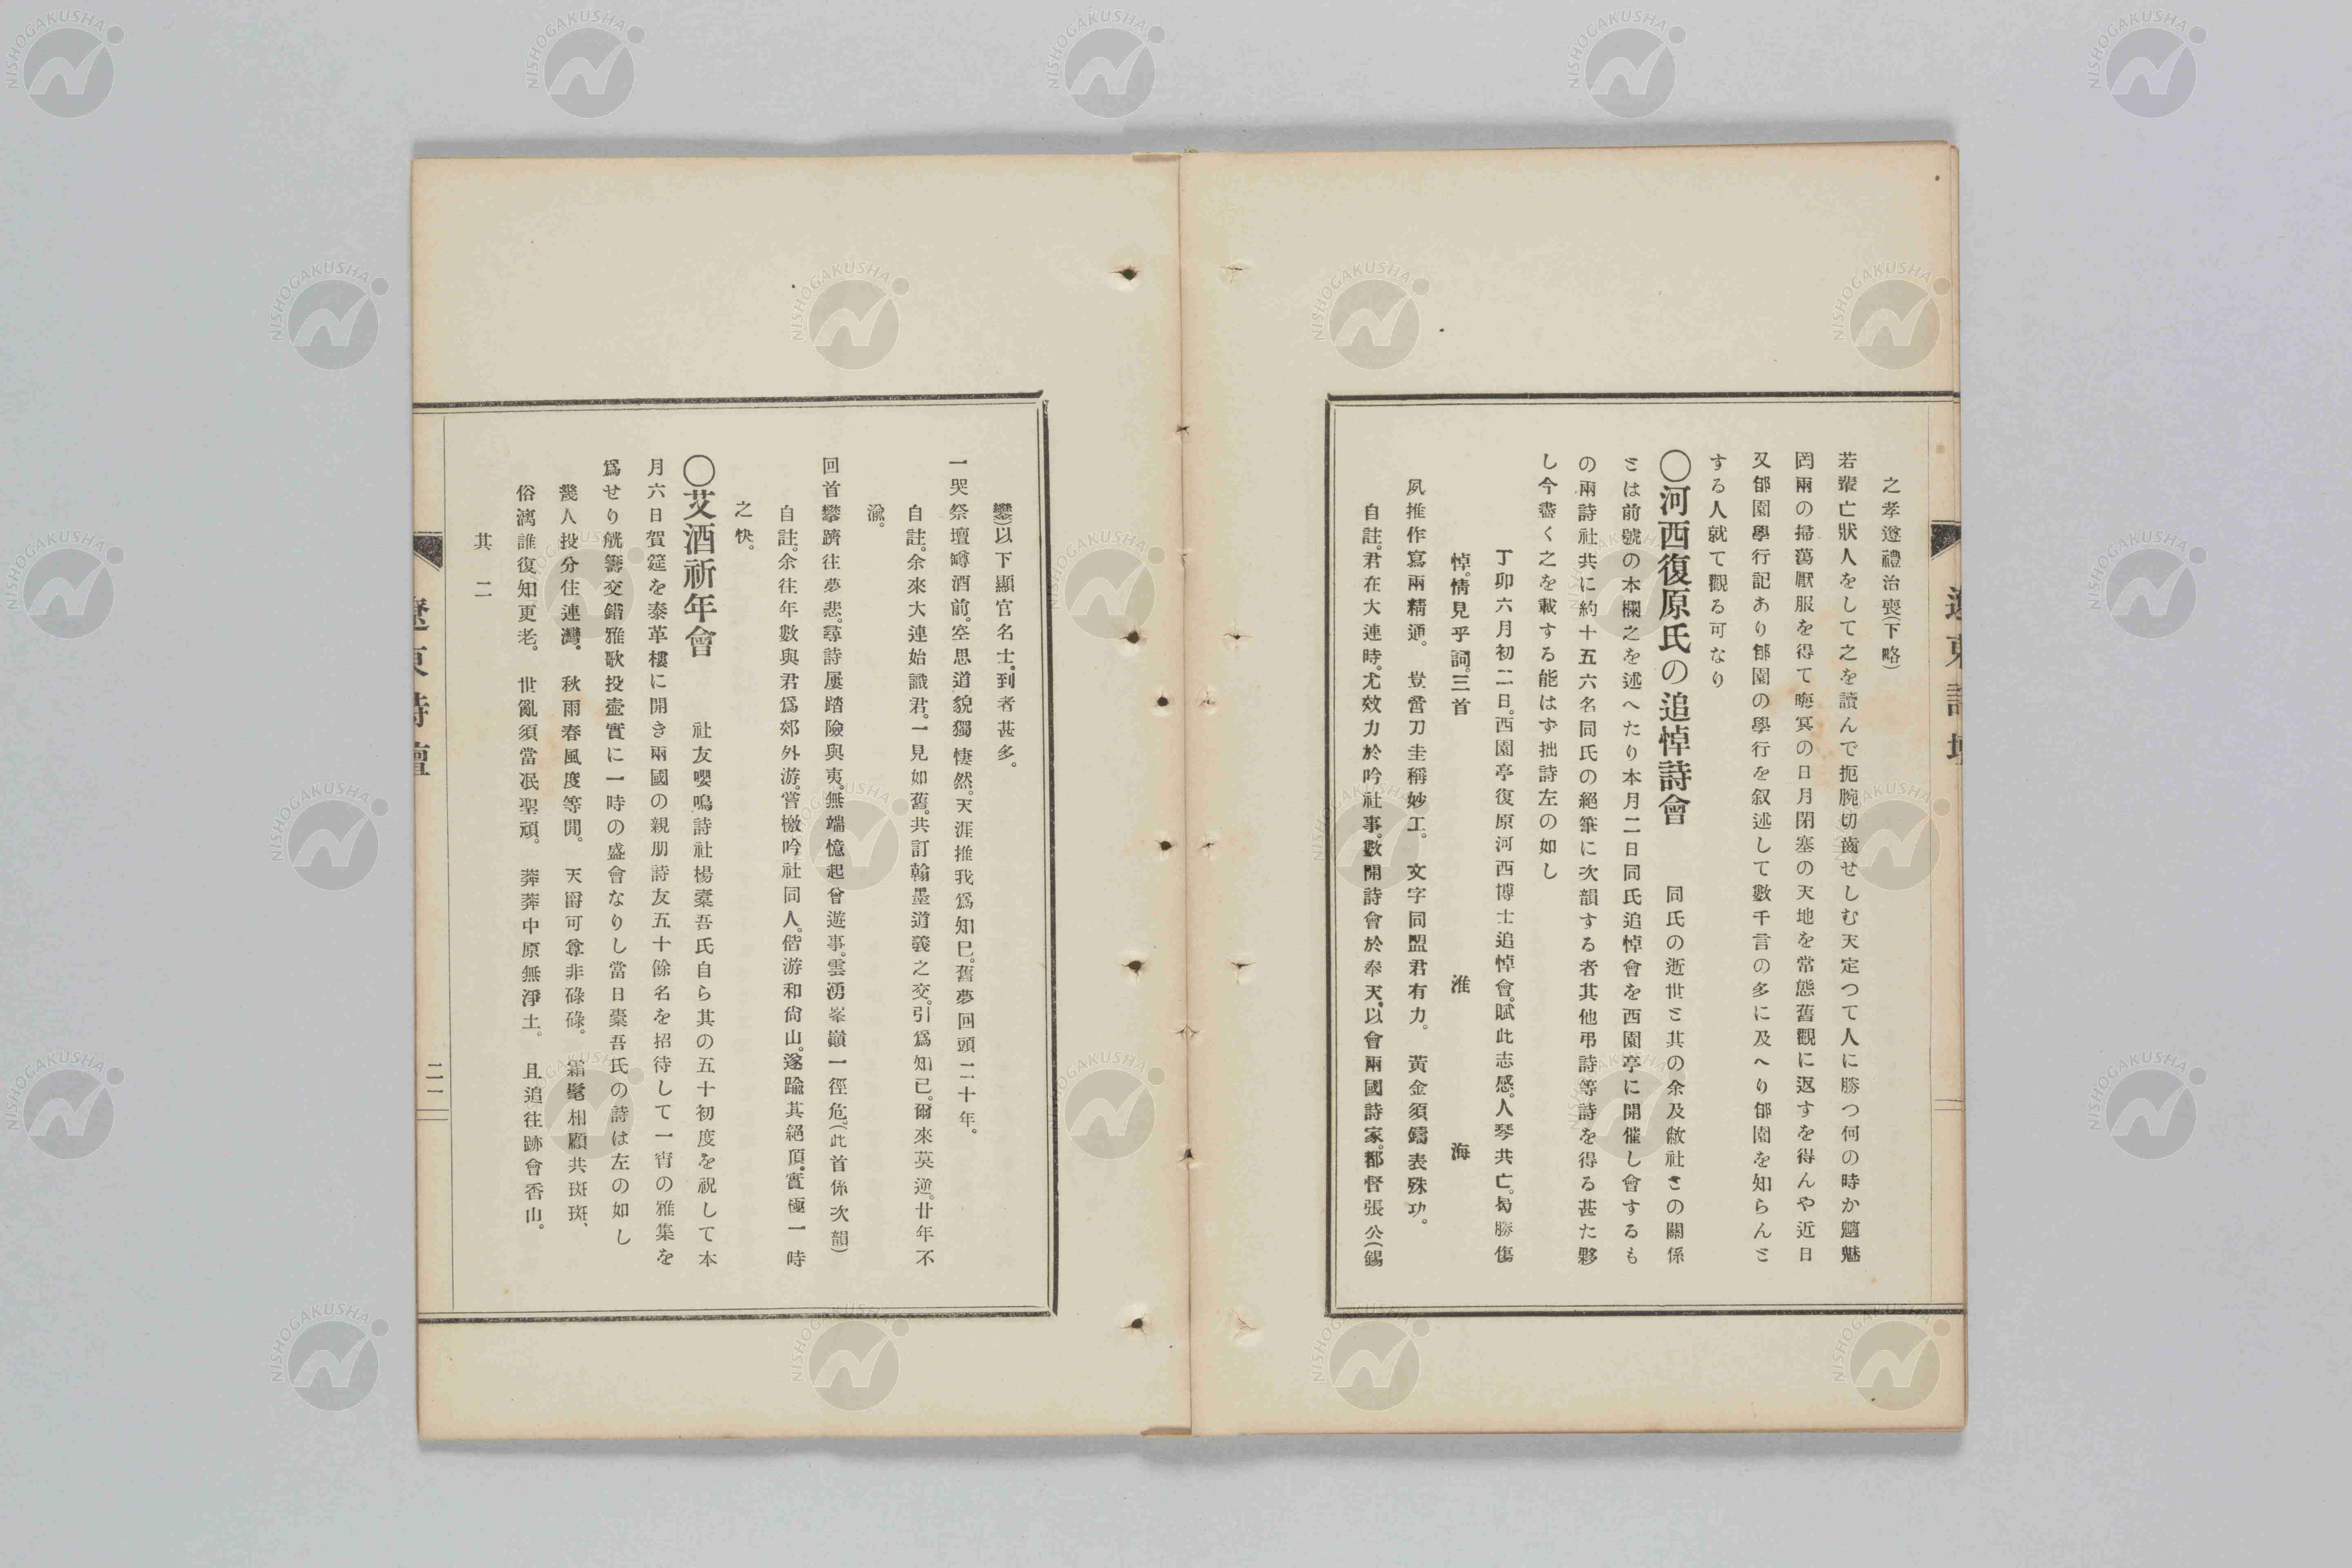 之孝遵禮治喪(下略)
若輩亡狀人をして之を讀んで扼腕切齒せしむ天定つて人に勝つ何の時か魑魅
罔兩の掃蕩厭服を得て晦冥の日月閉塞の天地を常態舊觀に返すを得んや近日
又郋園學行記あり郋園の學行を叙述して數千言の多に及へり郋園を知らんと
する人就て觀る可なり
〇河西復原氏の追悼詩會 同氏の逝世と其の余及敝社との關係
とは前號の本欄之を述へたり本月二日同氏追悼會を西園亭に開催し會するも
の兩詩社共に約十五六名同氏の絕筆に次韻する者其他弔詩等詩を得る甚た夥
し今盡く之を載する能はず拙詩左の如し
丁卯六月初二日。西園亭復原河西博士追悼會。賦此志感。人琴共亡。曷勝傷
悼。情見乎詞。三首 淮海
夙推作寫兩精通。 豈啻刀圭稱妙工。 文字同盟君有力。 黃金須鑄表殊功。
自註。君在大連時。尤效力於吟社事。數開詩會於奉天。以會兩國詩家。都督張公(錫
鑾)以下顯官名士。到者甚多。
一哭祭壇罇酒前。空思道貌獨悽然。天涯推我爲知已。舊夢回頭二十年。
自註。余來大連始識君。一見如舊。共訂翰墨道義之交。引爲知已。爾來莫逆。廿年不
渝。
回首攀躋往夢悲。尋詩屢踏險與夷。無端憶起曾遊事。雲湧峯巓一徑危。(此首係次韻)
自註。余往年數與君爲郊外游。嘗檄吟社同人。偕游和尙山。遂踰其絕頂。實極一時
之快。
〇艾酒祈年會 社友嚶鳴詩社楊槖吾氏自ら其の五十初度を祝して本
月六日賀筵を泰革樓に開き兩國の親朋詩友五十餘名を招待して一宵の雅集を
爲せり觥籌交錯雅歌投壷實に一時の盛會なりし當日槖吾氏の詩は左の如し
幾人投分住連灣。 秋雨春風度等閒。 天爵可尊非碌碌。 霜髦相顧共斑斑、
俗漓誰復知更老。 世亂須當泯聖頑。 莽莽中原無淨土。 且追往跡會香山。
其二
遼東詩壇
二一